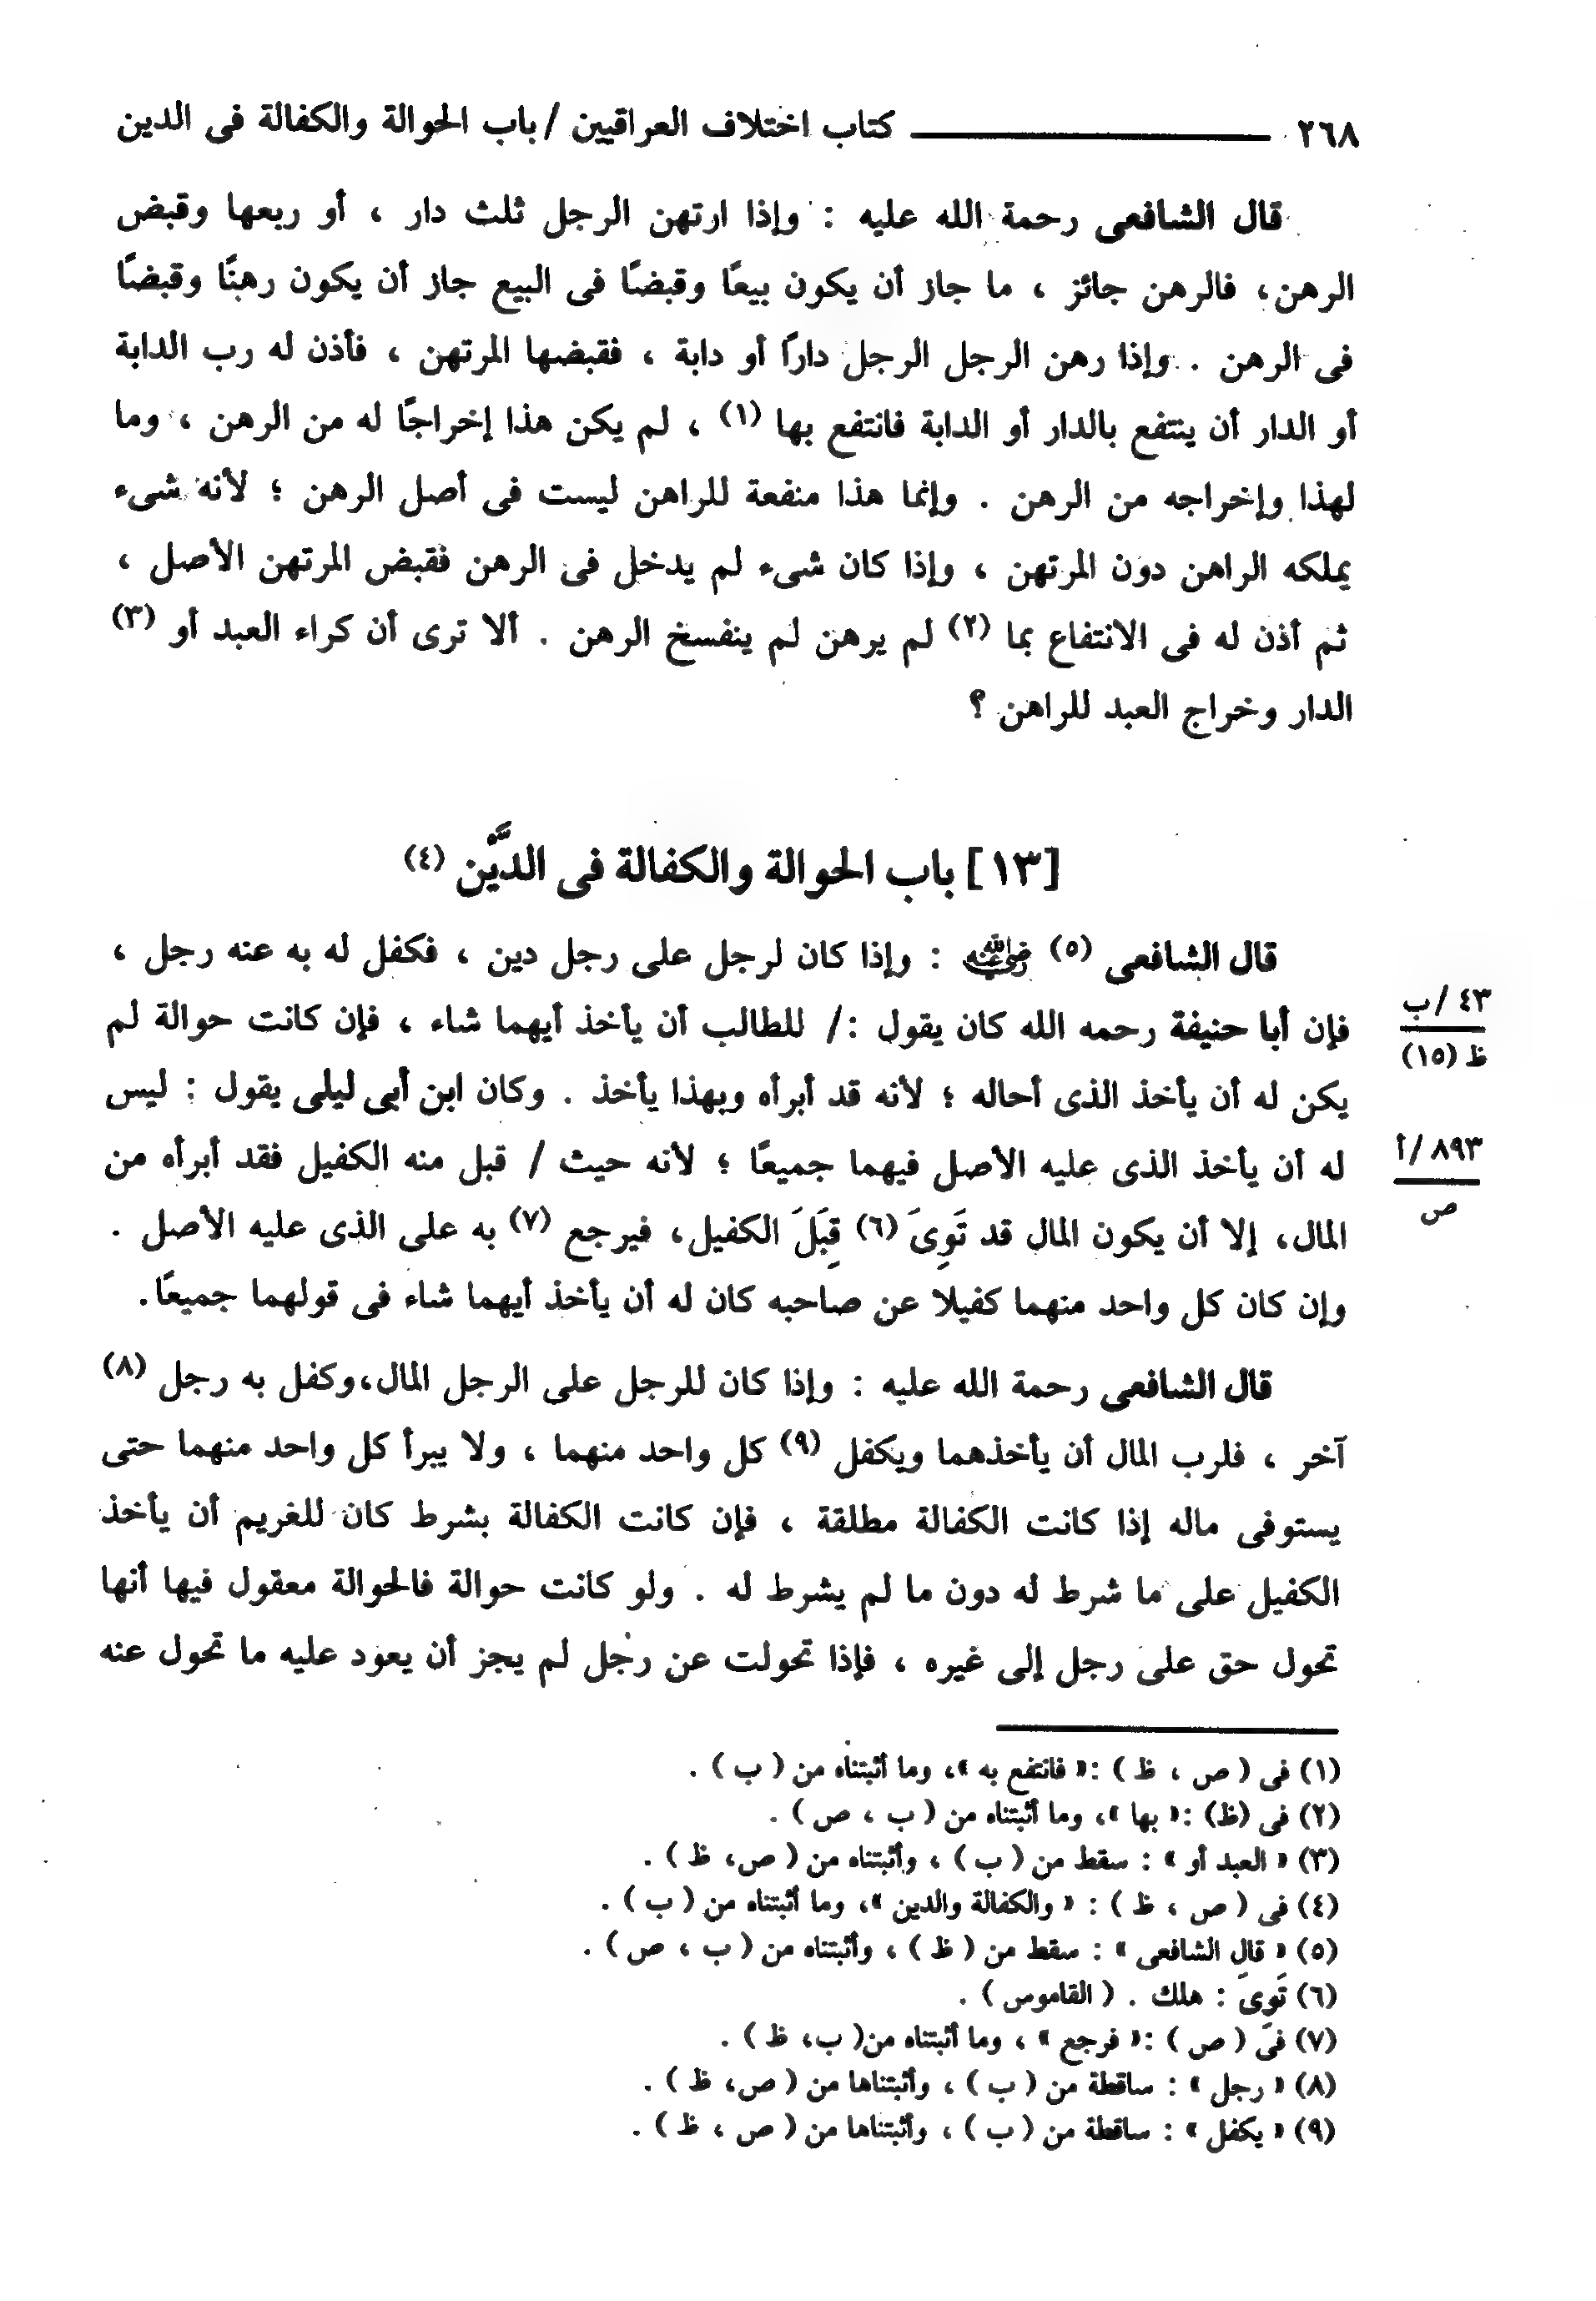 ٢٦٨ كتاب اختلاف العراقيين / باب الحوالة والكفالة فى الدين
قال الشافعى رحمة الله عليه : وإذا ارتهن الرجل ثلث دار ، أو ربعها وقبض
الرهن، فالرهن جائز ، ما جاز أن يكون بيعًا وقبضًا فى البيع جاز أن يكون رهنًا وقبضًا
فى الرهن . وإذا رهن الرجل الرجل دارًا أو دابة ، فقبضها المرتهن ، فأذن له رب الدابة
أو الدار أن ينتفع بالدار أو الدابة فانتفع بها (١) ، لم يكن هذا إخراجًا له من الرهن ، وما
لهذا وإخراجه من الرهن . وإنما هذا منفعة للراهن ليست فى أصل الرهن ؛ لأنه شىء
يملكه الراهن دون المرتهن ، وإذا كان شىء لم يدخل فى الرهن فقبض المرتهن الأصل ،
ثم أذن له فى الانتفاع بما (٢) لم يرهن لم ينفسخ الرهن . ألا ترى أن كراء العبد أو (٣)
الدار وخراج العبد للراهن ؟
[١٣] باب الحوالة والكفالة فى الدَّيْن (٤)
قال الشافعى (٥) رضي الله عنه : وإذا كان لرجل على رجل دين ، فكفل له به عنه رجل ،
فإن أبا حنيفة رحمه الله كان يقول :/ للطالب أن يأخذ أيهما شاء ، فإن كانت حوالة لم
٤٣/ب
ظ (١٥)
يكن له أن يأخذ الذى أحاله ؛ لأنه قد أبرأه وبهذا يأخذ . وكان ابن أبى ليلى يقول : ليس
له أن يأخذ الذى عليه الأصل فيهما جميعًا ؛ لأنه حيث / قبل منه الكفيل فقد أبرأه من
٨٩٣/أ
ص
المال، إلا أن يكون المال قد تَوِىَ (٦) قِبَلَ الكفيل، فيرجع (٧) به على الذى عليه الأصل .
وإن كان كل واحد منهما كفيلا عن صاحبه كان له أن يأخذ أيهما شاء فى قولهما جميعًا.
قال الشافعى رحمة الله عليه : وإذا كان للرجل على الرجل المال،وكفل به رجل (٨)
آخر ، فلرب المال أن يأخذهما ويكفل (٩) كل واحد منهما ، ولا يبرأ كل واحد منهما حتى
يستوفى ماله إذا كانت الكفالة مطلقة ، فإن كانت الكفالة بشرط كان للغريم أن يأخذ
الكفيل على ما شرط له دون ما لم يشرط له . ولو كانت حوالة فالحوالة معقول فيها أنها
تحول حق على رجل إلى غيره ، فإذا تحولت عن رجل لم يجز أن يعود عليه ما تحول عنه
(١) فى ( ص ، ظ ) :« فانتفع به »، وما أثبتناه من ( ب ) .
(٢) فى (ظ) :« بها »، وما أثبتناه من ( ب ، ص ) .
(٣) « العبد أو » : سقط من ( ب ) ، وأثبتناه من ( ص، ظ ) .
(٤) فى ( ص ، ظ ) : « والكفالة والدين »، وما أثبتناه من ( ب ) .
(٥) « قال الشافعى » : سقط من ( ظ ) ، وأثبتناه من ( ب ، ص ) .
(٦) تَوِىَ : هلك . ( القاموس ) .
(٧) فى ( ص ) :« فرجع » ، وما أثبتناه من( ب، ظ ) .
(٨) « رجل » : ساقطة من ( ب ) ، وأثبتناها من ( ص، ظ ) .
(٩) « يكفل » : ساقطة من ( ب ) ، وأثبتناها من ( ص ، ظ ) .